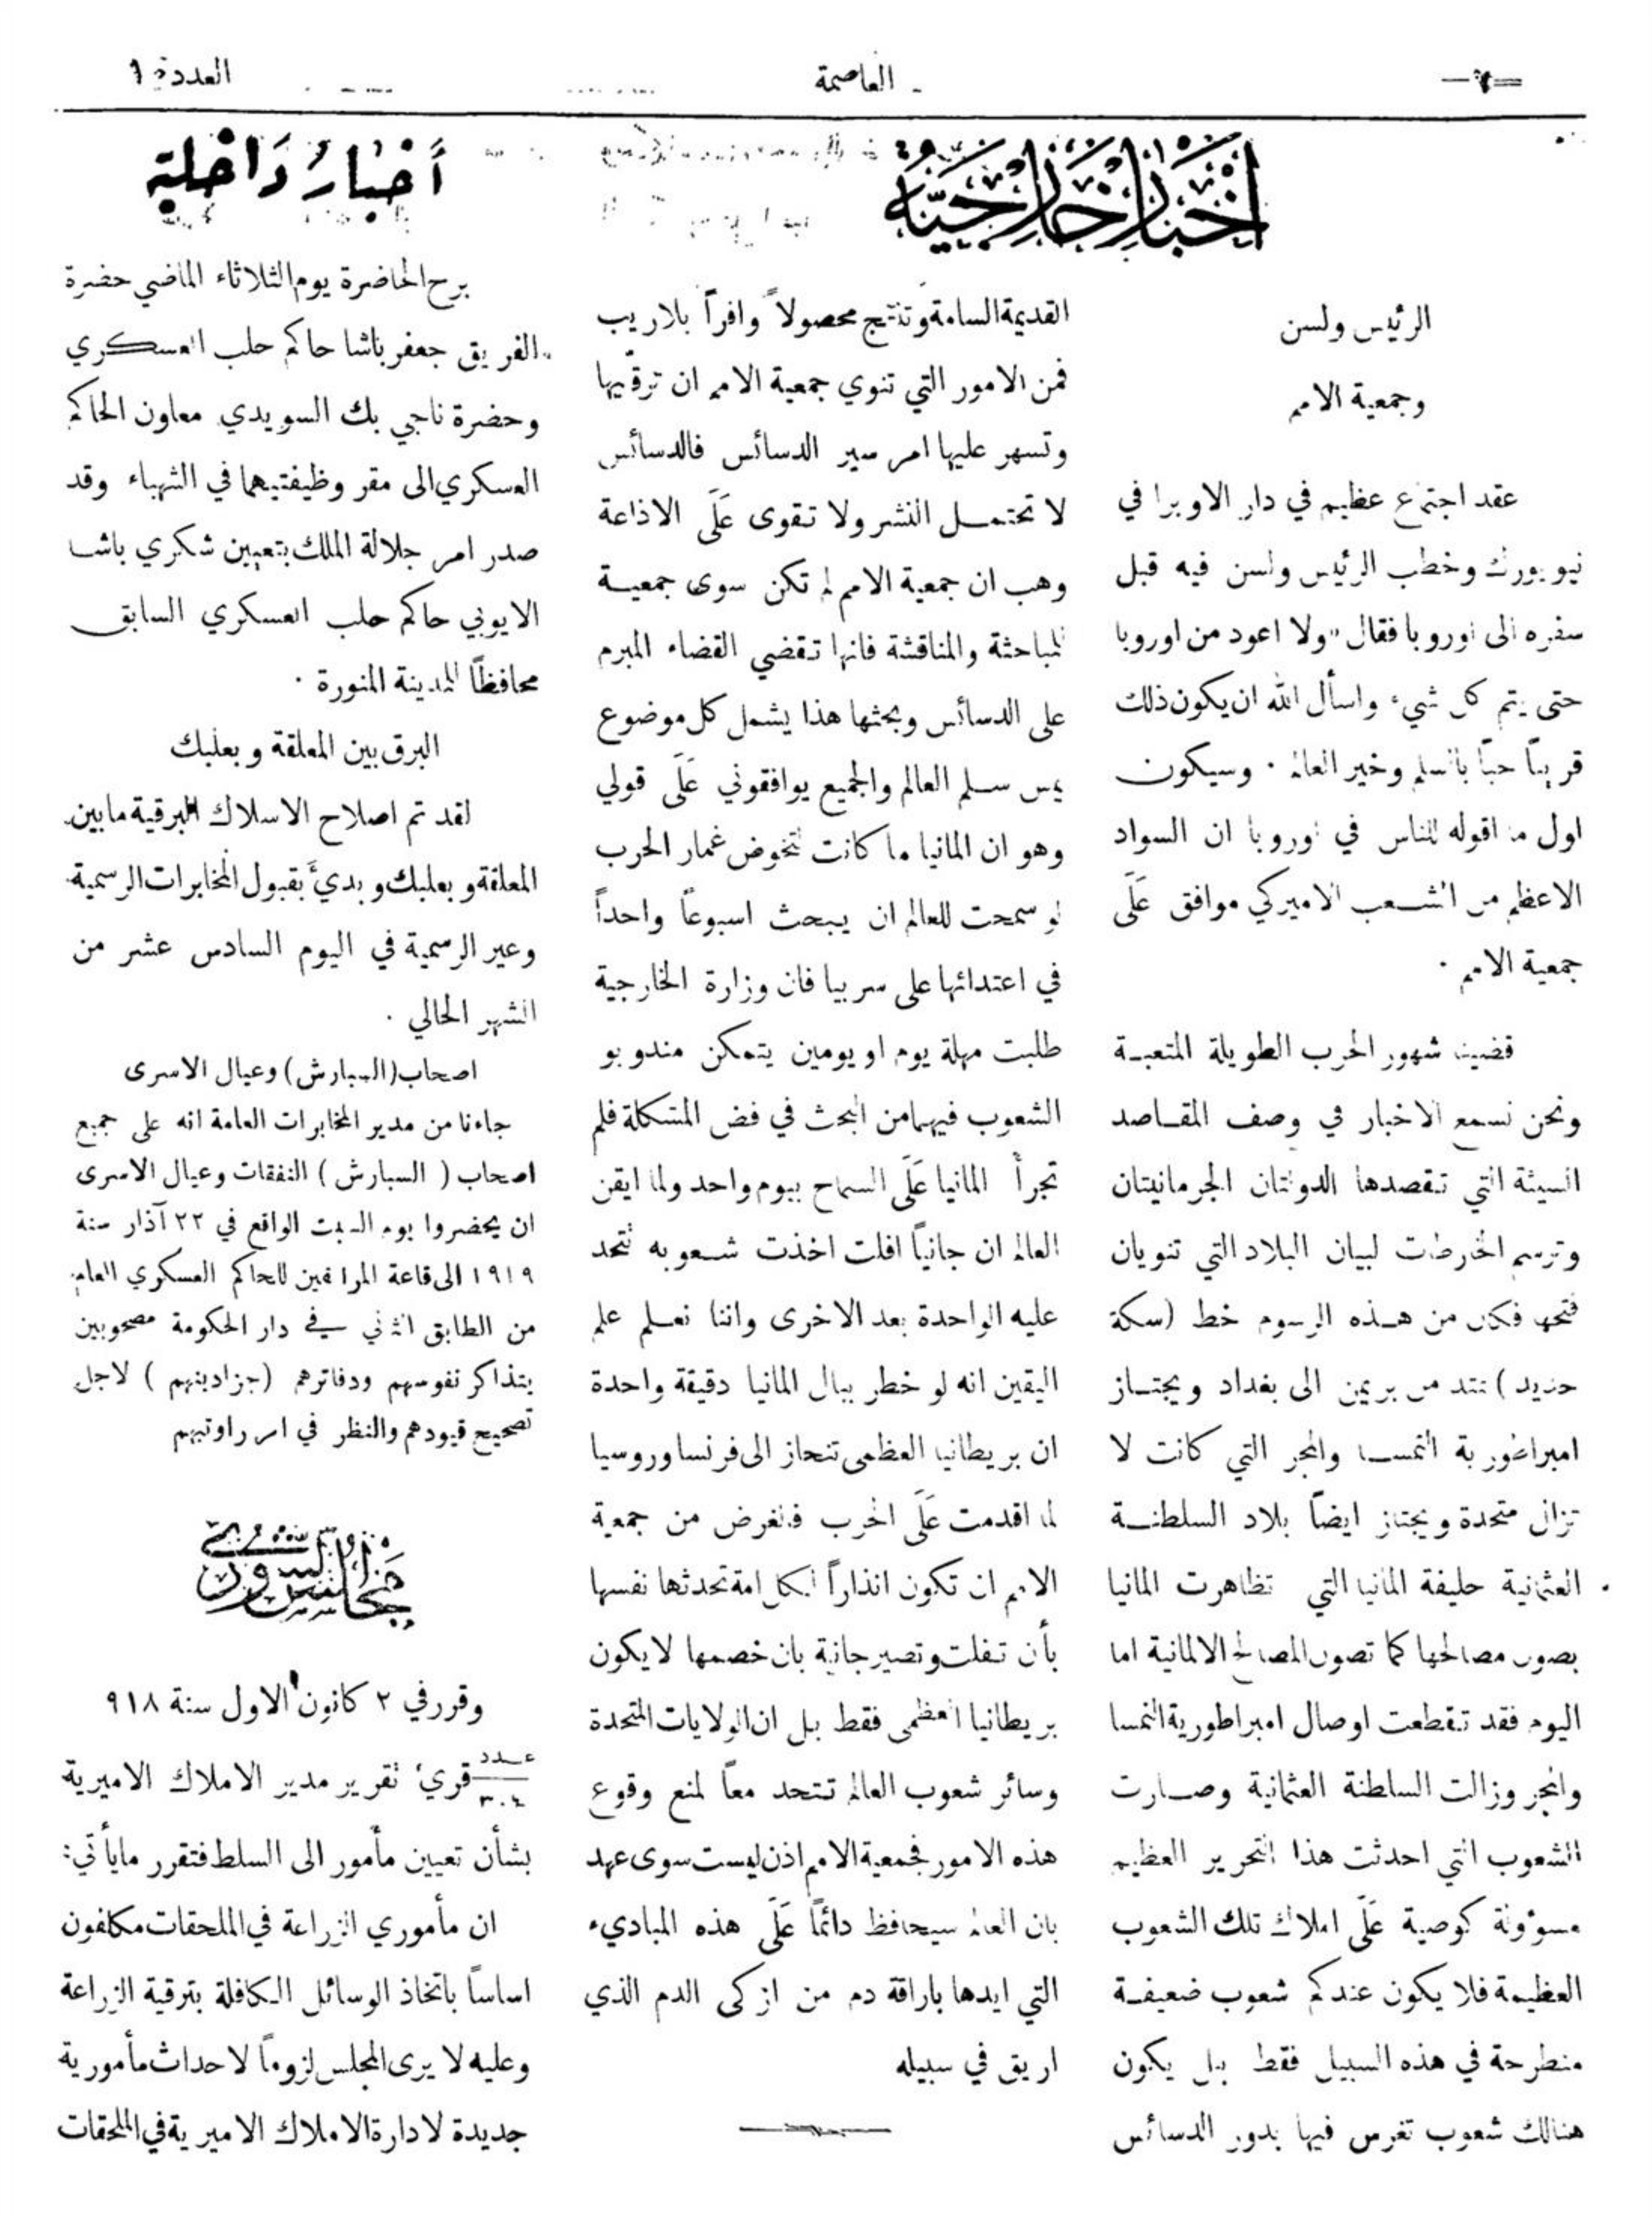 العاصمة
العدد
أخبار خارجية
الرئيس ولسن
وجمعية الامم
عقد اجتماع عظيم في دار الاوبرا في
نيويورك وخطب الرئيس ولسن فيه قبل
سفره الى اوروبا فقال «ولا اعود من اوروبا
حتى يتم كل شيء واسأل الله ان يكون ذلك
قريباً حباً بالسلم وخير العالم ٠ وسيكون
اول ما اقوله للناس في اوروبا ان السواد
الاعظم من الشعب الاميركي موافق عَلَى
جمعية الامم ٠
قضينا شهور الحرب الطويلة المتعبة
ونحن نسمع الاخبار في وصف المقاصد
السيئة التي تقصدها الدولتان الجرمانيتان
وترسم الخارطات لبيان البلاد التي تنويان
فتحها فكان من هذه الرسوم خط (سكة
حديد) تمتد من بريمن الى بغداد ويجتاز
امبراطورية النمسا والمجر التي كانت لا
تزال متحدة ويجتاز ايضاً بلاد السلطنة
العثمانية حليفة المانيا التي تظاهرت المانيا
بصون مصالحها كما تصون المصالح الالمانية اما
اليوم فقد تقطعت اوصال امبراطورية النمسا
والمجر وزالت السلطنة العثمانية وصارت
الشعوب التي احدثت هذا التحرير العظيم
مسوؤلة كوصية عَلَى املاك تلك الشعوب
العظيمة فلا يكون عندكم شعوب ضعيفة
منطرحة في هذه السبيل فقط بل يكون
هنالك شعوب تغرس فيها بدور الدسائس
القديمة السامة وتنتج محصولاً وافراً بلا ريب
فمن الامور التي تنوي جمعية الامم ان ترقبها
وتسهر عليها امر سير الدسائس فالدسائس
لا تحتمل النشر ولا تقوى عَلَى الاذاعة
وهب ان جمعية الامم لم تكن سوى جمعية
للمباحثة والمناقشة فانها تقضي القضاء المبرم
على الدسائس وبحثها هذا يشمل كل موضوع
يمس سلم العالم والجميع يوافقوني عَلَى قولي
وهو ان المانيا ما كانت لتخوض غمار الحرب
لو سمحت للعالم ان يبحث اسبوعاً واحداً
في اعتدائها على سربيا فان وزارة الخارجية
طلبت مهلة يوم او يومين يتمكن مندوبو
الشعوب فيهما من البحث في فض المشكلة فلم
تجرأ المانيا عَلَى السماح بيوم واحد ولما ايقن
العالم ان جانياً افلت اخذت شعوبه تتحد
عليه الواحدة بعد الاخرى واننا نعلم علم
اليقين انه لو خطر ببال المانيا دقيقة واحدة
ان بريطانيا العظمى تنحاز الى فرنسا وروسيا
لما اقدمت عَلَى الحرب فالغرض من جمعية
الامم ان تكون انذاراً لكل امة تحدثها نفسها
بأن تفلت وتصير جانية بان خصمها لا يكون
بريطانيا العظمى فقط بل ان الولايات المتحدة
وسائر شعوب العالم تتحد معاً لمنع وقوع
هذه الامور فجمعية الامم اذن ليست سوى عهد
بان العالم سيحافظ دائماً عَلَى هذه المباديء
التي ايدها باراقة دم من ازكى الدم الذي
اريق في سبيله
أخبار داخلية
برح الحاضرة يوم الثلاثاء الماضي حضرة
الفريق جعفر باشا حاكم حلب العسكري
وحضرة ناجي بك السويدي معاون الحاكم
العسكري الى مقر وظيفتيهما في الشهباء وقد
صدر امر جلالة الملك بتعيين شكري باشا
الايوبي حاكم حلب العسكري السابق
محافظاً للمدينة المنورة ٠
البرق بين المعلقة وبعلبك
لقد تم اصلاح الاسلاك البرقية ما بين
المعلقة وبعلبك وبدئَ بقبول المخابرات الرسمية
وغير الرسمية في اليوم السادس عشر من
الشهر الحالي ٠
اصحاب (السبارش) وعيال الاسرى
جاءنا من مدير المخابرات العامة انه على جميع
اصحاب ( السبارش ) النفقات وعيال الاسرى
ان يحضروا يوم السبت الواقع في ٢٢ آذار سنة
١٩١٩ الى قاعة المرافقين للحاكم العسكري العام
من الطابق الثاني في دار الحكومة مصحوبين
بتذاكر نفوسهم ودفاترهم (جزادينهم ) لاجل
تصحيح قيودهم والنظر في امر راوتبهم
مجلس الشورى
وقرر في ٢ كانون الاول سنة ٩١٨
عدد ٣٠٤ قريَ تقرير مدير الاملاك الاميرية
بشأن تعيين مأمور الى السلط فتقرر ما يأتي:
ان مأموري الزراعة في الملحقات مكلفون
اساساً باتخاذ الوسائل الكافلة بترقية الزراعة
وعليه لا يرى المجلس لزوماً لاحداث مأمورية
جديدة لادارة الاملاك الاميرية في الملحقات